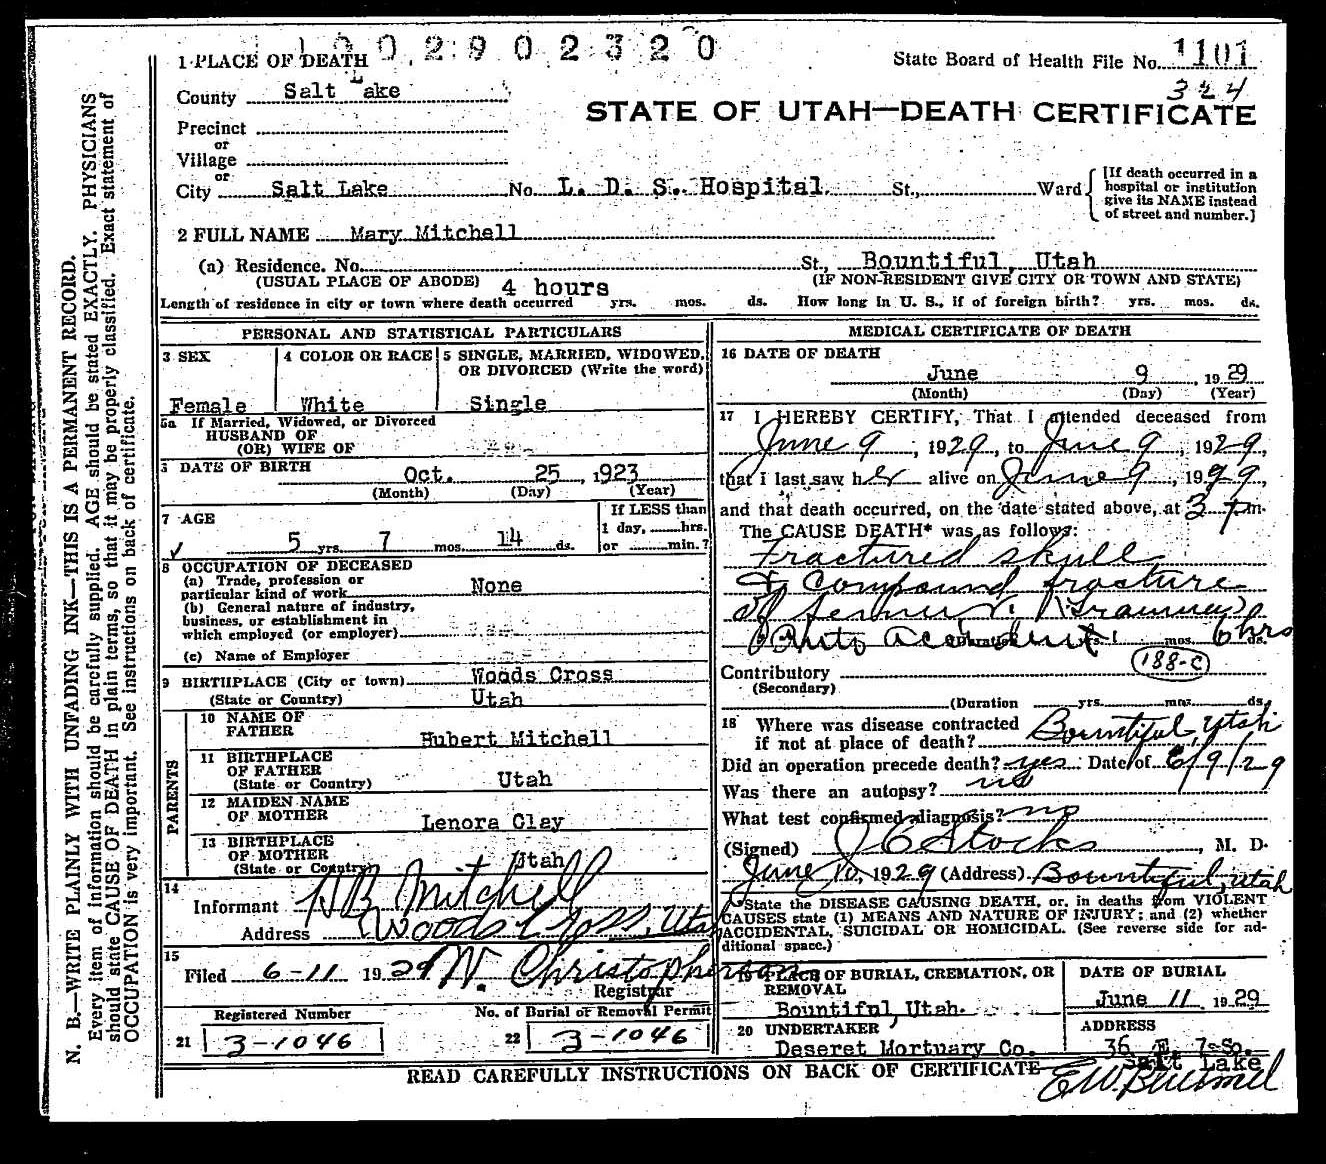 1002902320
1 PLACE OF DEATH
State Board of Health File No. 1101
324
County Salt Lake
STATE OF UTAH—DEATH CERTIFICATE
Precinct
or
Village
or
City Salt Lake No. L. D. S. Hospital St., Ward
[If death occurred in a
hospital or institution
give its NAME instead
of street and number.]
2 FULL NAME Mary Mitchell
(a) Residence. No. St., Bountiful, Utah
(USUAL PLACE OF ABODE) (IF NON-RESIDENT GIVE CITY OR TOWN AND STATE)
Length of residence in city or town where death occurred 4 hours yrs. mos. ds. How long in U. S., if of foreign birth? yrs. mos. ds.
PERSONAL AND STATISTICAL PARTICULARS
3 SEX
Female
4 COLOR OR RACE
White
5 SINGLE, MARRIED, WIDOWED,
OR DIVORCED (Write the word)
Single
5a If Married, Widowed, or Divorced
HUSBAND OF
(OR) WIFE OF
DATE OF BIRTH
Oct. 25, 1923
(Month) (Day) (Year)
7 AGE
5 yrs. 7 mos. 14 ds.
If LESS than
1 day, hrs.
or min.?
8 OCCUPATION OF DECEASED
(a) Trade, profession or
particular kind of work None
(b) General nature of industry,
business, or establishment in
which employed (or employer)
(c) Name of Employer
9 BIRTHPLACE (City or town) Woods Cross
(State or Country) Utah
PARENTS
10 NAME OF
FATHER Hubert Mitchell
11 BIRTHPLACE
OF FATHER
(State or Country) Utah
12 MAIDEN NAME
OF MOTHER Lenora Clay
13 BIRTHPLACE
OF MOTHER
(State or Country) Utah
14
Informant HB Mitchell
Address Woods Cross, Utah
15
Filed 6-11 1929 W. Christopherson
Registrar
Registered Number
21 3-1046
No. of Burial or Removal Permit
22 3-1046
MEDICAL CERTIFICATE OF DEATH
16 DATE OF DEATH
June 9, 1929
(Month) (Day) (Year)
17 I HEREBY CERTIFY, That I attended deceased from
June 9, 1929, to June 9, 1929,
that I last saw her alive on June 9, 1929,
and that death occurred, on the date stated above, at 3 P m.
The CAUSE DEATH* was as follows:
Fractured skull
& Compound fracture
of femur. (Trauma)
Auto accident. mos. 6 hrs ds.
188-C
Contributory
(Secondary)
(Duration yrs. mos. ds.
18 Where was disease contracted
if not at place of death? Bountiful, Utah
Did an operation precede death? yes Date of 6/9/29
Was there an autopsy? no
What test confirmed diagnosis? no
(Signed) J C Stocks, M. D.
June 10, 1929 (Address) Bountiful, Utah
State the DISEASE CAUSING DEATH, or, in deaths from VIOLENT
CAUSES state (1) MEANS AND NATURE OF INJURY; and (2) whether
ACCIDENTAL, SUICIDAL OR HOMICIDAL. (See reverse side for ad-
ditional space.)
19 PLACE OF BURIAL, CREMATION, OR
REMOVAL
Bountiful, Utah.
DATE OF BURIAL
June 11 1929
20 UNDERTAKER
Deseret Mortuary Co.
ADDRESS
36 E 7 So.
Salt Lake
READ CAREFULLY INSTRUCTIONS ON BACK OF CERTIFICATE
N. B.—WRITE PLAINLY WITH UNFADING INK—THIS IS A PERMANENT RECORD.
Every item of information should be carefully supplied. AGE should be stated EXACTLY. PHYSICIANS
should state CAUSE OF DEATH in plain terms, so that it may be properly classified. Exact statement of
OCCUPATION is very important. See instructions on back of certificate.